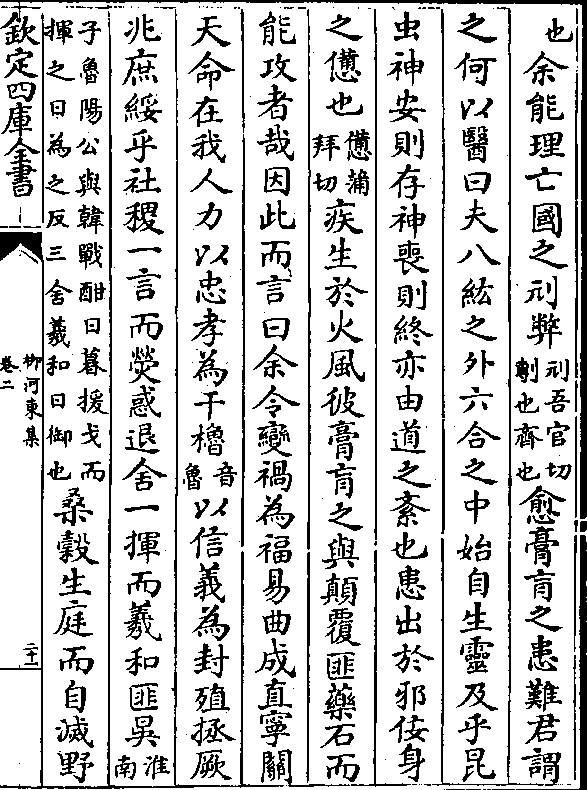 也余能理亡國之刓弊刓吾官切剸也齊也愈膏肓之患難君謂
之何以醫曰夫八紘之外六合之中始自生靈及乎昆
虫神安則存神喪則終亦由道之紊也患出於邪佞身
之憊也憊蒲拜切疾生於火風彼膏肓之與顛覆匪藥石而
能攻者哉因此而言曰余今變禍為福易曲成直寧關
天命在我人力以忠孝為干櫓音魯以信義為封殖拯厥
兆庶綏乎社稷一言而熒惑退舍一揮而羲和匪昃淮南
子魯陽公與韓戰酣日暮援戈而揮之日為之反三舍羲和日御也桑榖生庭而自滅野
欽定四庫全書
柳河東集
卷二
二十一